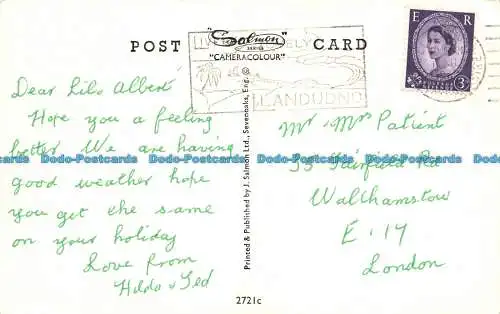 POST CARD
"Salmon"
SERIES
"CAMERACOLOUR"
LLANDUDNO
E R
3D
Dear Lilo Albert
Hope you a feeling
better We are having
good weather hope
you get the same
on your holiday
Love from
Hilda & Ted
Printed & Published by J. Salmon Ltd., Sevenoaks, Eng. ©
Mr Mrs Patient
Fairfield Rd
Walthamstow
E. 17
London
2721c
Dodo-Postcards Dodo-Postcards Dodo-Postcards Dodo-Postcards Dodo-Postcards